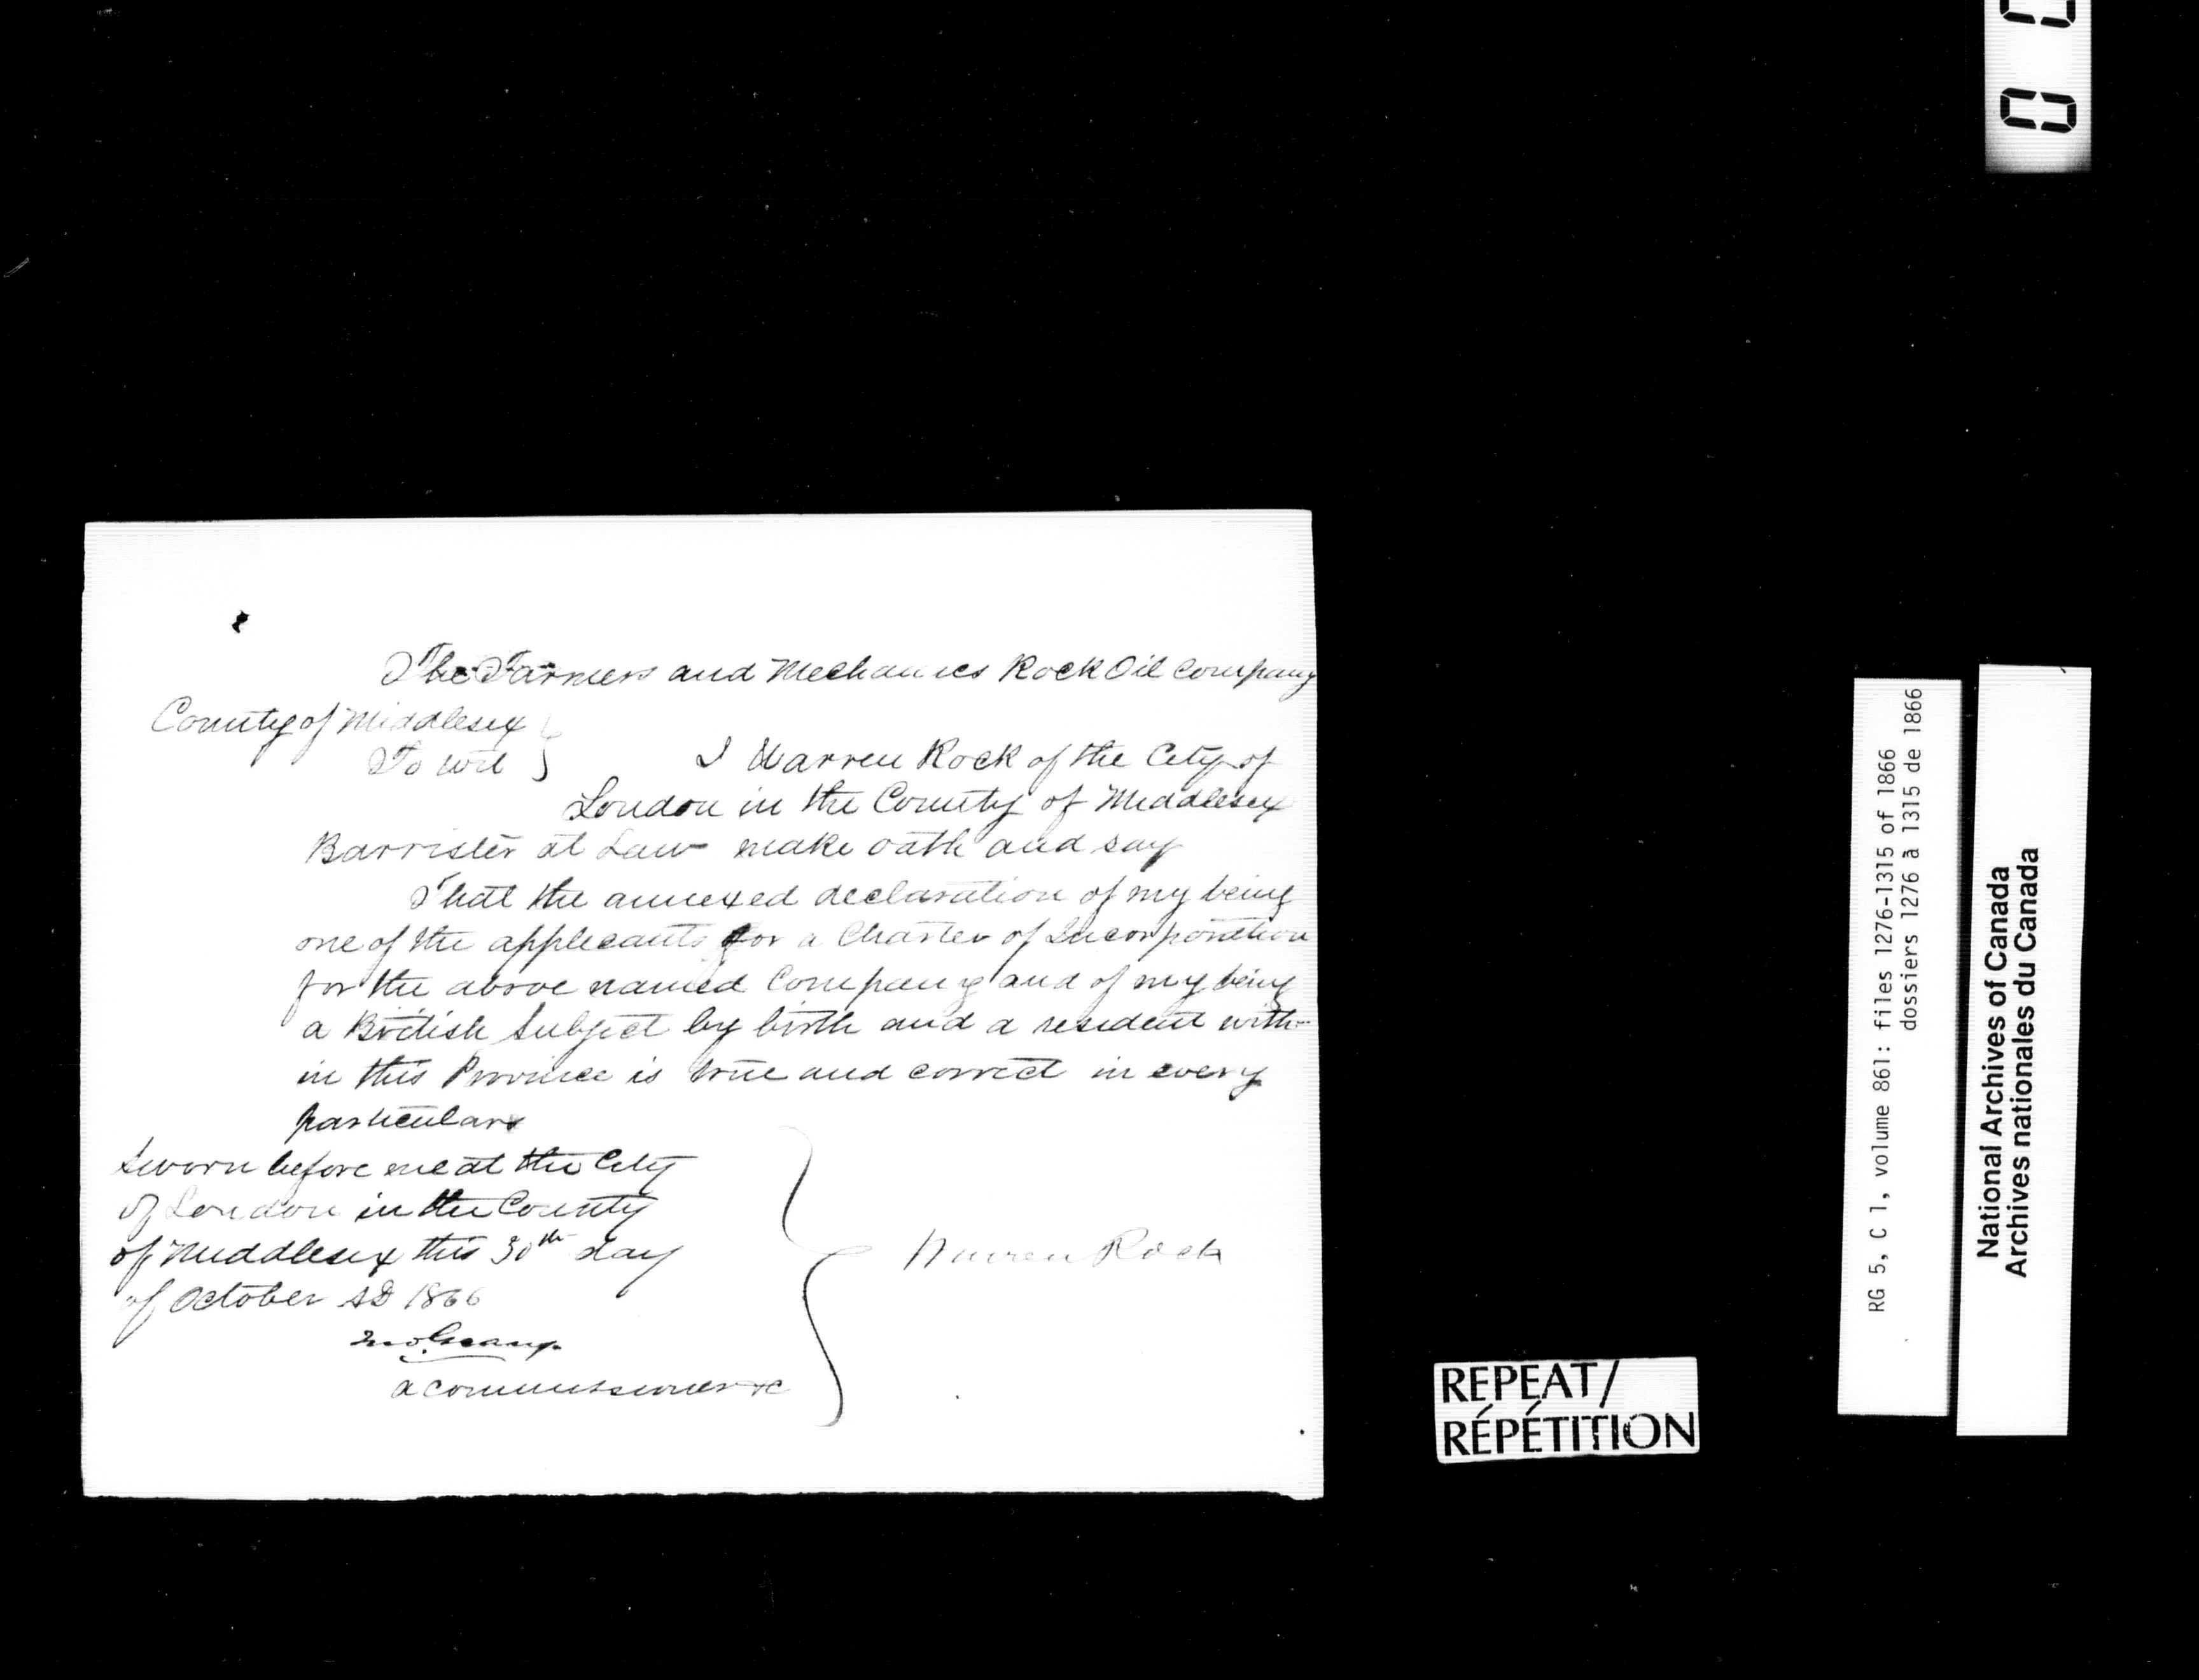 The Farmers and Mechanics Rock Oil Company
County of Middlesex
To wit
I Warren Rock of the City of
London in the County of Middlesex
Barrister at Law make oath and say
That the annexed declaration of my being
one of the applicants for a Charter of Incorporation
for the above named Company and of my being
a British Subject by birth and a resident with-
in this Province is true and correct in every
particular
Sworn before me at the City
of London in the County
of Middlesex this 30th day
of October AD 1866
a commissioner &c
Warren Rock
REPEAT/
RÉPÉTITION
RG 5, C 1, volume 861: files 1276-1315 of 1866
dossiers 1276 à 1315 de 1866
National Archives of Canada
Archives nationales du Canada